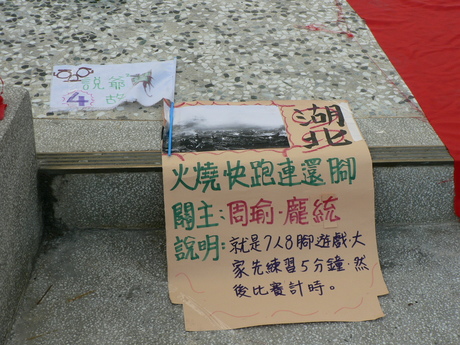 說爺
4 故
湖北
火燒快跑連還腳
關主:周瑜·龐統
說明:就是7人8腳遊戲·大
家先練習5分鐘·然
後比賽計時。